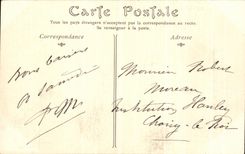 Carte Postale
Tous les pays étrangers n'acceptent pas la correspondance au recto
Se renseigner à la poste
Correspondance
Adresse
Bons baisers
à Samedi
Monsieur Robert
Moreau
Institution Hanley
Choisy-le-Roi